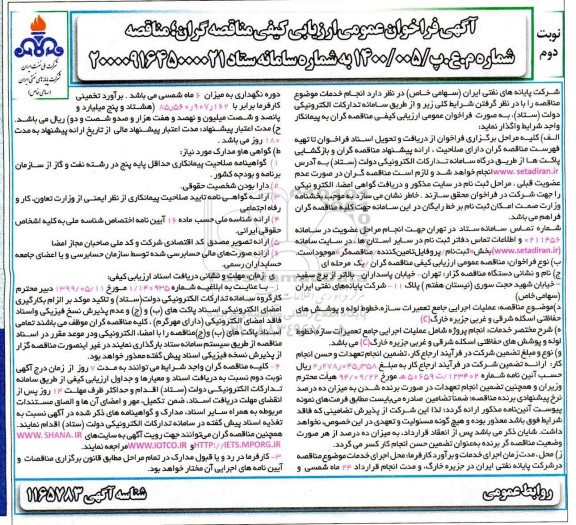 آگهی فراخوان عمومی ارزیابی کیفی مناقصه گران؛ مناقصه
شماره م.ع.پ/۱۴۰۰/۰۰۵ به شماره سامانه ستاد ۲۰۰۰۰۹۱۶۴۵۰۰۰۰۲۱
نوبت
دوم
شرکت ملی نفت ایران
شرکت پایانه های نفتی ایران
(سهامی خاص)
شرکت پایانه های نفتی ایران (سهامی خاص) در نظر دارد انجام خدمات موضوع
مناقصه را با در نظر گرفتن شرایط کلی زیر و از طریق سامانه تدارکات الکترونیکی
دولت (ستاد)، به صورت فراخوان عمومی ارزیابی کیفی مناقصه گران به پیمانکار
واجد شرایط واگذار نماید:
الف) کلیه مراحل برگزاری فراخوان از دریافت و تحویل اسناد فراخوان تا تهیه
فهرست مناقصه گران دارای صلاحیت، ارائه پیشنهاد مناقصه گران و بازگشایی
پاکت ها از طریق درگاه سامانه تدارکات الکترونیکی دولت (ستاد) به آدرس
www.setadiran.ir انجام خواهد شد و لازم است مناقصه گران در صورت عدم
عضویت قبلی، مراحل ثبت نام در سایت مذکور و دریافت گواهی امضا، الکترونیکی
را جهت شرکت در فراخوان محقق سازند. خاطر نشان می سازد بموجب بخشنامه
وزارت صمت امکان ثبت نام بر خط رایگان در این سامانه جهت کلیه مناقصه گران
فراهم می باشد.
شماره تماس سامانه ستاد در تهران جهت انجام مراحل عضویت در سامانه
۰۲۱۱۴۵۶ و اطلاعات تماس دفاتر ثبت نام در سایر استان ها، در سایت سامانه
(www.setadiran.ir) بخش «ثبت نام / پروفایل تامین کننده / مناقصه گر» موجود است.
ب) نوع فراخوان: مناقصه عمومی ارزیابی کیفی مناقصه گران / یک مرحله ای
ج) نام و نشانی دستگاه مناقصه گزار: تهران - خیابان پاسداران - بالاتر از برج سفید
- خیابان شهید حجت سوری (نیستان هفتم) پلاک ۱۱- شرکت پایانه های نفتی ایران
(سهامی خاص)
د) موضوع مناقصه: عملیات اجرایی جامع تعمیرات سازه خطوط لوله و پوشش های
حفاظتی اسکله شرقی و غربی جزیره خارگ (C)
ه) شرح مختصر خدمات: انجام پروژه شامل عملیات اجرایی جامع تعمیرات سازه خطوط
لوله و پوشش های حفاظتی اسکله شرقی و غربی جزیره خارگ (C) می باشد.
و) نوع و مبلغ تضمین شرکت در فرآیند ارجاع کار، تضمین انجام تعهدات و حسن انجام
کار: ارائه تضمین شرکت در فرآیند ارجاع کار به مبلغ ۴٫۲۷۸٫۰۴۵٫۳۵۸ ریال
وزیران و همچنین تضمین انجام تعهدات در صورت برنده شدن به میزان ده درصد
نرخ پیشنهادی برنده مناقصه؛ ضمناً تضامین صادره می بایست مطابق فرمت های نمونه
پیوست آئین نامه مذکور ارائه گردد؛ لذا این شرکت از پذیرش تضامینی که فاقد
شرایط فوق باشد معذور بوده و هیچ گونه مسئولیت و تعهدی در این خصوص، نخواهد
داشت. شایان ذکر می باشد پس از انعقاد قرارداد، به میزان ده درصد از هر صورت
وضعیت مناقصه گر برنده به عنوان تضمین حسن انجام کار کسر می گردد.
ز) محل، مدت زمان اجرای خدمات و برآورد کارفرما: محل اجرای خدمات موضوع مناقصه
در شرکت پایانه نفتی ایران در جزیره خارگ، و مدت انجام قرارداد ۲۴ ماه شمسی و
دوره نگهداری به میزان ۶ ماه شمسی می باشد. برآورد تخمینی
کارفرما برابر با ۸۵٫۵۶۰٫۹۰۷٫۱۶۲ (هشتاد و پنج میلیارد و
پانصد و شصت میلیون و نهصد و هفت هزار و صدو شصت و دو) ریال می باشد.
ح) مدت اعتبار پیشنهاد: مدت اعتبار پیشنهاد مالی از تاریخ ارائه پیشنهاد به مدت
۱۸۰ روز می باشد.
ط) گواهی ها و مدارک مورد نیاز:
۱) گواهینامه صلاحیت پیمانکاری حداقل پایه پنج در رشته نفت و گاز از سازمان
برنامه و بودجه کشور.
۲) دارا بودن شخصیت حقوقی.
۳) ارائه گواهی نامه تایید صلاحیت پیمانکاری از نظر ایمنی از وزارت تعاون، کار و
رفاه اجتماعی
۴) ارائه شناسه ملی حسب ماده ۱۶ آیین نامه اختصاص شناسه ملی به کلیه اشخاص
حقوقی ایرانی.
۵) ارائه تصویر مصدق کد اقتصادی شرکت و کد ملی صاحبان مجاز امضا
۶) ارائه صورت های مالی حسابرسی شده توسط سازمان حسابرسی و یا اعضای جامعه
حسابداران رسمی
ی) زمان، مهلت و نشانی دریافت اسناد ارزیابی کیفی:
۱- با عنایت به ابلاغیه شماره ۱/۱۴۰۹۳۵ مورخ ۱۳۹۹/۰۵/۱۱ دبیر محترم
کارگروه سامانه تدارکات الکترونیکی دولت (ستاد) و تاکید موکد بر الزام بکارگیری
امضای الکترونیکی اسناد پاکت های (ب) و (ج) و عدم پذیرش نسخ فیزیکی و اسناد
فاقد امضای الکترونیکی (دارای مهر گرم)، کلیه مناقصه گران موظف می باشند تمامی
اسناد پاکت های (ب) و (ج) مناقصه را با امضا، الکترونیکی و در موعد مقرر در اسناد
مناقصه از طریق سیستم سامانه ستاد بارگذاری نمایند در غیر اینصورت مناقصه گزار
از پذیرش نسخه فیزیکی اسناد پیش گفته معذور خواهد بود.
۲- کلیه مناقصه گران واجد شرایط می توانند به مدت ۷ روز از زمان درج آگهی
نوبت دوم نسبت به دریافت اسناد و معیارها و جداول ارزیابی کیفی از طریق سامانه
تدارکات الکترونیکی دولت (ستاد) اقدام و حداکثر ظرف مهلت ۱۴ روز پس از
انقضای مهلت دریافت اسناد، ضمن تکمیل، مهر و امضای آن ها و الصاق مستندات
مربوطه به همراه سایر اسناد، مدارک و گواهینامه های ذکر شده در آگهی نسبت به
تغذیه اسناد پیش گفته در سامانه تدارکات الکترونیکی دولت (ستاد) اقدام نمایند.
همچنین مناقصه گران می توانند جهت رویت آگهی به سایت های WWW.SHANA.IR
و WWW.IOTCO.IR و HTTP://IETS.MPORG.IR مراجعه نمایند.
۳- کارفرما در رد و یا قبول مدارک در تمام مراحل مطابق قانون برگزاری مناقصات و
آیین نامه های اجرایی آن مختار خواهد بود.
روابط عمومی
شناسه آگهی ۱۱۶۵۷۸۳